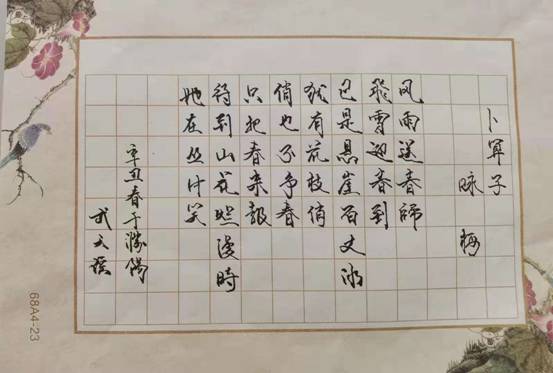 卜算子
咏梅
风雨送春歸
飛雪迎春到
已是悬崖百丈冰
犹有花枝俏
俏也不争春
只把春来報
待到山花烂漫時
她在丛中笑
辛丑春于滕陽
68A4-23